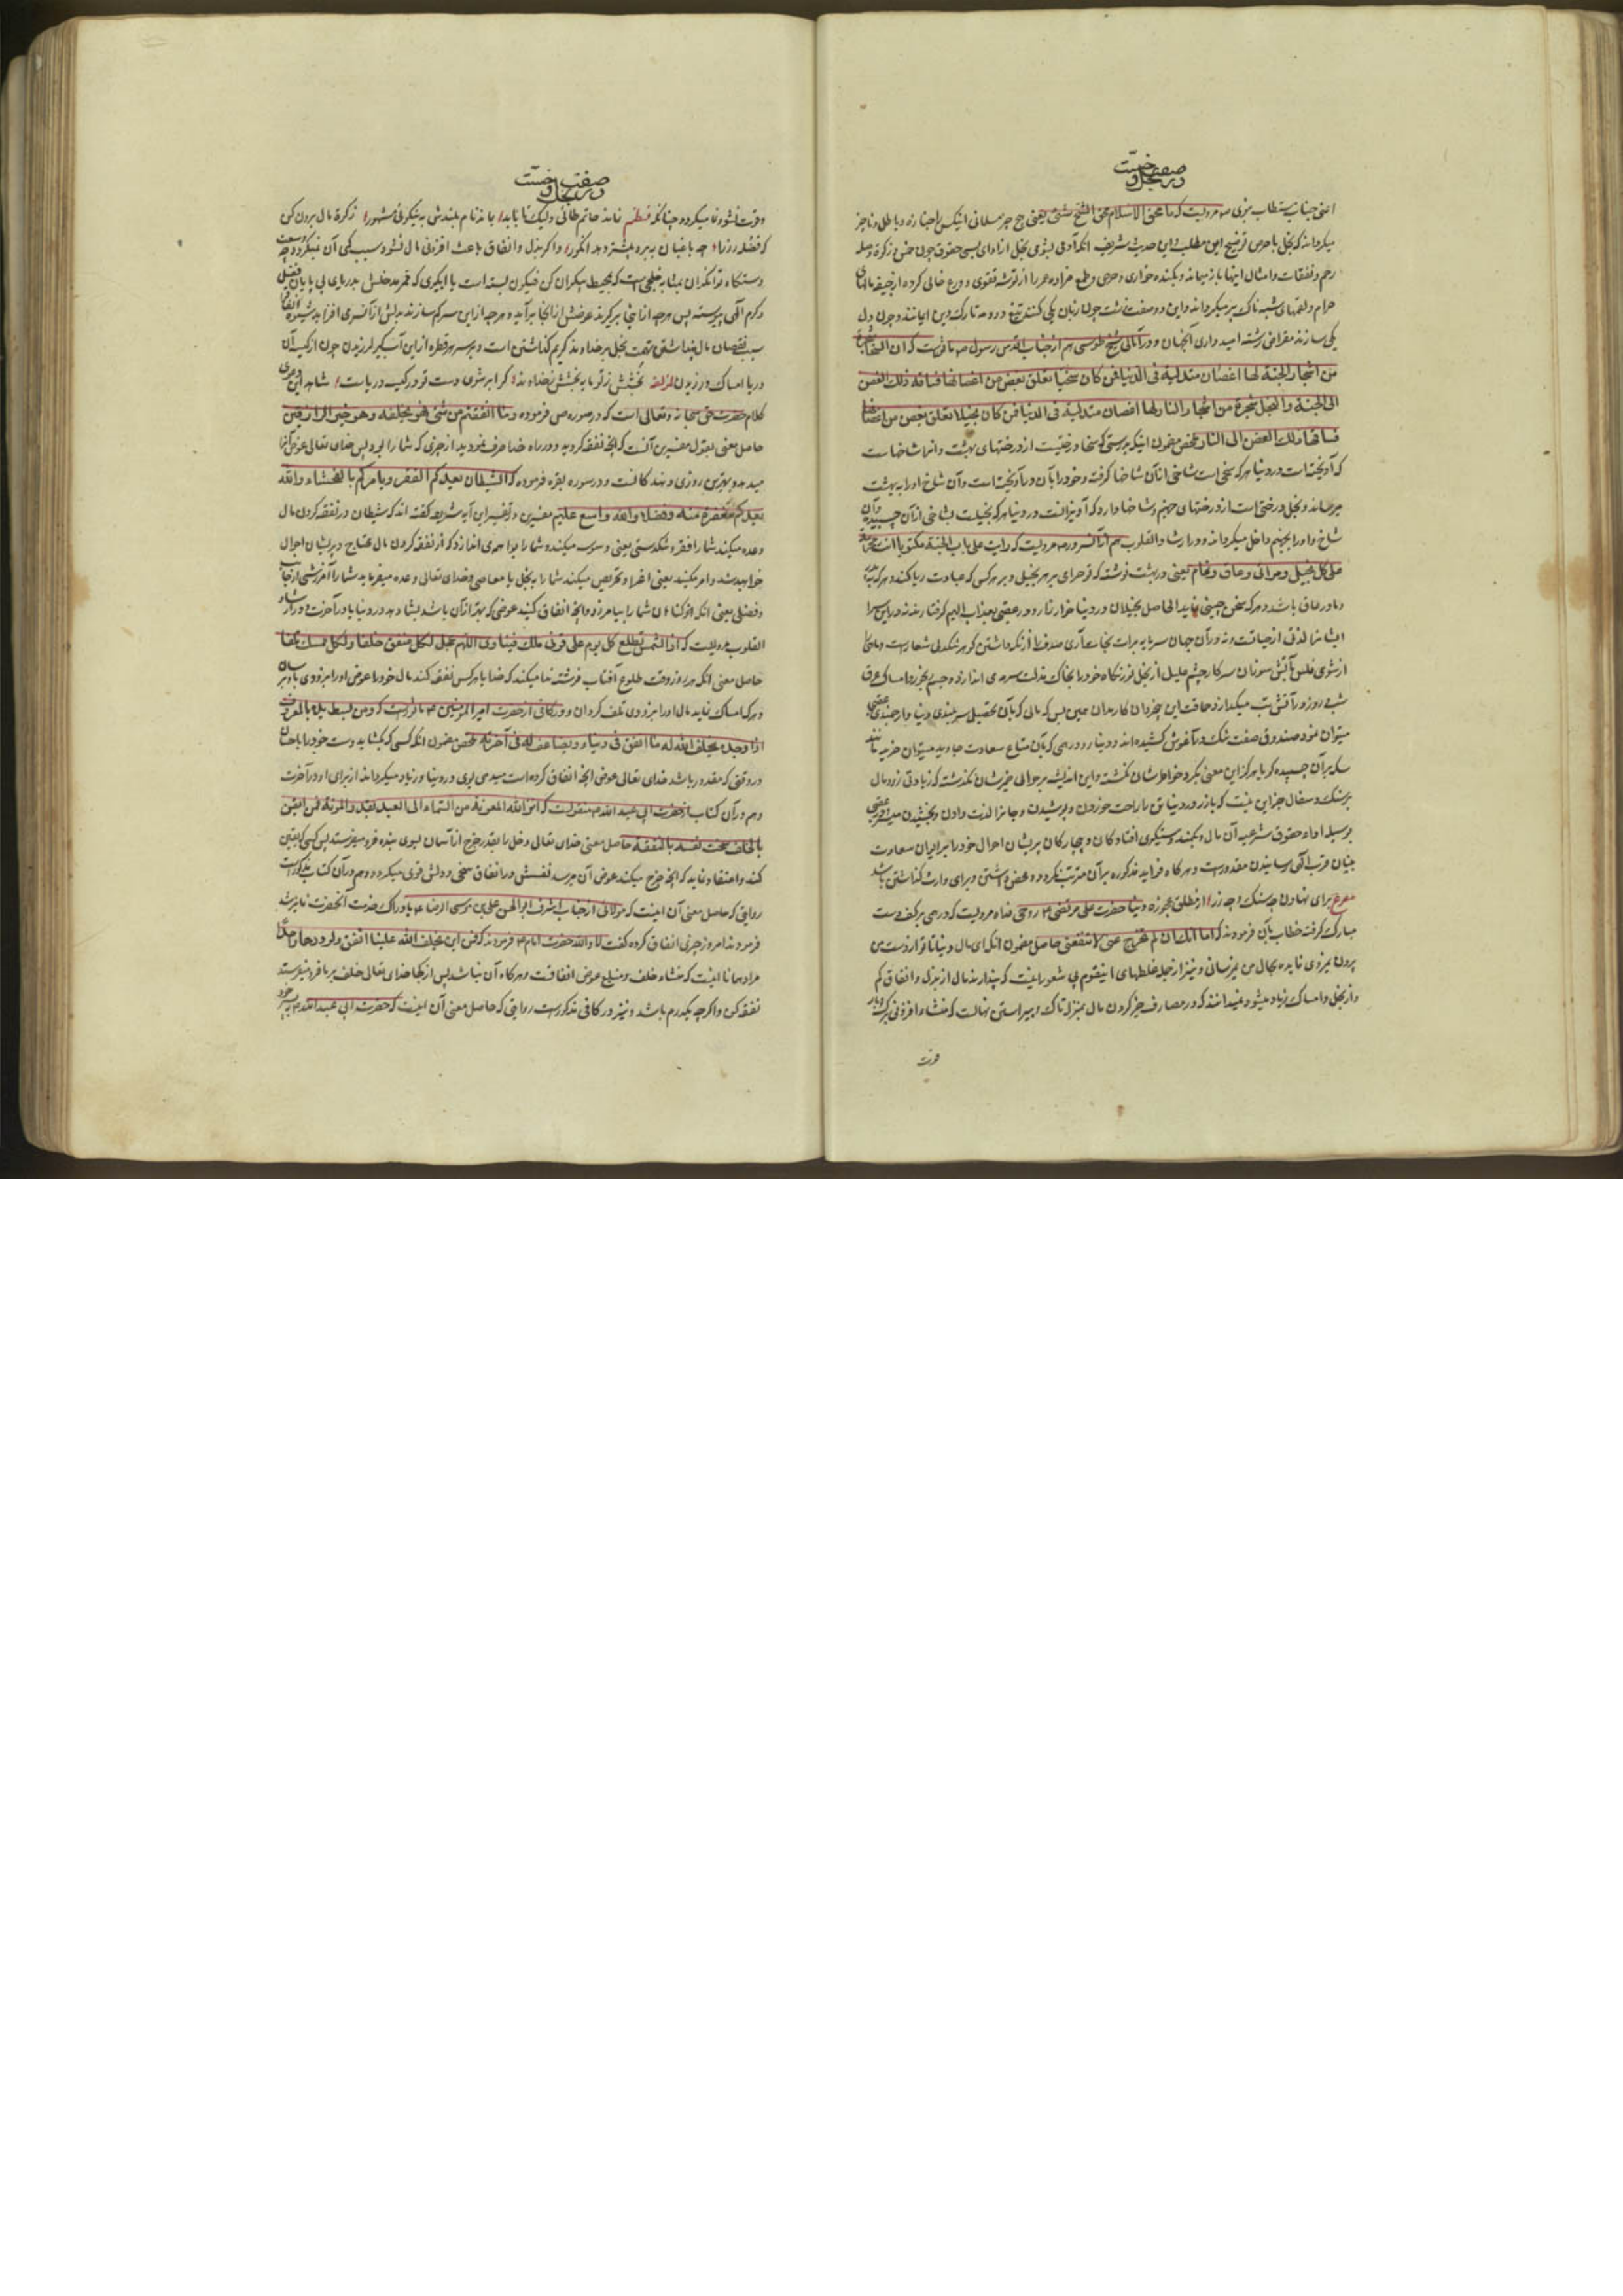 در صفت بخل و خسّت
اعنی جناب مستطاب نبوی ص مرویست که ما محق الاسلام محق الشح شیٔ یعنی هیچ چیز مسلمانی را
میگرداند که بخل یا حرص توضیح این مطلب و این حدیث شریف آنکه آدمی بشومی بخل از ادای بسی حقوق چون خمس و زکوة و صله
رحم و نفقات و امثال اینها باز میماند و
حرام و لقمهای شبهه ناک پر میگرداند و این دو صفت زشت چون زبان یکی کنند تیغ دو دمه تارک دین و ایمانند و چون دل
یکی سازند مقراض رشته امیدواری آنجهان و در امالی شیخ طوسی هم از جناب اقدس رسول ص ماثورست که ان السخا شجرة
من اشجار الجنة لها اغصان متدلیة فی الدنیا فمن کان سخیا تعلق بغصن من اغصانها فساقه ذلک الغصن
الی الجنة و البخل شجرة من اشجار النار لها اغصان متدلیة فی الدنیا فمن کان بخیلا تعلق بغصن من اغصانها
فساقه ذلک الغصن الی النار ملخص مضمون اینکه بدرستی که سخا درختیست از درختهای بهشت و آنرا شاخهاست
که آویخته است در دنیا هر که سخی است شاخی از آن شاخها گرفته و خود را بآن درآویخته است و آن شاخ او را به بهشت
میرساند و بخل درختی است از درختهای جهنم و شاخها دارد که آویزانست در دنیا هر که بخیلست بشاخی از آن چسبیده و آن
شاخ او را بجهنم داخل میگرداند و در ارشاد القلوب هم از آنسرور ص مرویست که رایت علی باب الجنة مکتوبا انت محرمة
علی کل بخیل و مرائی و عاق و نمام یعنی در بهشت نوشته که تو حرامی بر هر بخیل و بر هر کس که عبادت ریا کند و هر که بپدر
و مادر عاق باشد و هر که سخن چینی نماید الحاصل بخیلان در دنیا خوار و زار و در عقبی بعذاب الیم گرفتار نه در این سرا
ایشانرا لذتی از حیاتست و نه در آن جهان سرمایه برات نجات
از شومی فلس بآتش سوزان سر کار
شب و روز در آتش تب میگدازد حماقت این بیخردان
میتوان نمود صندوق صفت تنگ در آغوش کشیده‌اند و دینار و درهمی که بآن متاع سعادت جاوید میتوان خرید مانند
سکه بر آن چسبیده گویا هرگز این معنی بگرد خاطرشان نگشته و این اندیشه بر حوالی ضمیرشان نگذشته که زیادتی زر و مال
بر سنگ و سفال جز این نیست که با زر در دنیا تن را راحت خوردن و پوشیدن و جانرا لذت دادن و بخشیدن میسر و در عقبی
بوسیله اداء حقوق شرعیه آن مال و بکمند دستگیری افتادگان و بیچارگان پریشان احوال خود را بر ایوان سعادت
بنیان قرب الهی رسانیدن مقدورست و هرگاه فواید مذکوره بر آن مترتب نگردد و محض داشتن و برای وارث گذاشتن باشد
مصرع برای نهادن چه سنگ و چه زر از مطلق عجوزه دنیا حضرت علی مرتضی ع روحی فداه مرویست که درهمی بر کف دست
مبارک گرفت خطاب بآن فرمودند که اما انک ان لم تخرج عنی لا تنفعنی حاصل مضمون آنکه ای مال دنیا تا تو از دست من
بیرون نمیروی فایده بحال من نمیرسانی و نیز از جمله غلطهای اینقوم بی شعور اینست که پندارند مال از بذل و انفاق کم
و از بخل و امساک زیاد میشود نمیدانند که در مصارف خیر کردن مال بمنزله تاک پیراستن نهالست که منشاء افزونی برگ و بار
قوت
در صفت بخل و خسّت
و قوت نشو و نما میگردد چنانکه نظم نماند حاتم طائی ولیک تا بابد بماند نام بلندش به نیکوئی مشهور زکوة مال بدر کن
که فضله رز را چو باغبان ببرد بیشتر دهد انگور و اگر بذل و انفاق باعث افزونی مال نشود سبب کمی آن نمیگردد چه وسعت
دستگاه توانگران بمثابه خلیجیست که بمحیط بیکران کن فیکون پیوسته است یا آبگیری که ممر مدخلش بدریای بی پایان فضل
و کرم الهی پیوسته پس هرچه از اینجا برگیرند عوضش از آنجا برآید و هرچه از این سر کم سازند بدلش از آنسر می افزاید
سبب نقصان مال پنداشتن تهمت بخل بر خداوند کریم گذاشتن است و بر سر هر قطره از این آبگیر لرزیدن چون از یک آن
دریا امساک ورزیدن لمؤلفه بخشش ز تو مایه بخشش ز خداوند کز ابر شوی دست تو در کیسه دریاست شاهد این مدعی
کلام حضرت حق سبحانه و تعالی است که در سوره ص فرموده و ما انفقتم من شیٔ فهو یخلفه و هو خیر الرازقین
حاصل معنی بقول مفسرین آنست که آنچه نفقه کردید و در راه خدا صرف نمودید از چیزی که شما را بود پس خدای تعالی عوض آنرا
میدهد و بهترین روزی دهندگانست و در سوره بقره فرموده که الشیطان یعدکم الفقر و یامرکم بالفحشاء و الله
یعدکم مغفرة منه و فضلا و الله واسع علیم مفسرین در تفسیر این آیه شریفه گفته اند که شیطان در نفقه کردن مال
وعده میکند شما را فقر و تنگدستی یعنی وسوسه میکند و شما را بواهمه می اندازد که از نفقه کردن مال محتاج و پریشان احوال
خواهید شد و امر میکند یعنی اغرا و تحریص میکند شما را به بخل یا معاصی و خدای تعالی وعده میفرماید شما را آمرزشی از جانب خود
و فضلی یعنی آنکه از گناهان شما را بیامرزد و آنچه انفاق کنید عوضی که بهتر از آن باشد بشما دهد در دنیا یا در آخرت و در ارشاد
القلوب مرویست که اذا الشمس تطلع کل یوم علی قرنی ملک فینادی اللهم عجل لکل منفق خلفا و لکل ممسک تلفا
حاصل معنی آنکه هر روز وقت طلوع آفتاب فرشته ندا میکند که خدایا هر کس نفقه کند مال خود را عوض او را بزودی باو برسان
و هر که امساک نماید مال او را بزودی تلف گردان و در کافی از حضرت امیر المؤمنین ع ماثورست که و من یبسط یده بالمعروف
اذا وجد یخلف الله له ما انفق فی دنیاه و یضاعف له فی آخرته ملخص مضمون آنکه کسی که بگشاید دست خود را باحسان
در وقتی که مقدور باشد خدای تعالی عوض آنچه انفاق کرده است میدهد بوی در دنیا و زیاد میگرداند از برای او در آخرت
و هم در آن کتاب از حضرت ابی عبد الله ع منقولست که انزل الله المعونة من السماء الی العبد بقدر المؤنة فمن ایقن
بالخلف سخت نفسه بالنفقة حاصل معنی خدای تعالی دخل را بقدر خرج از آسمان بسوی بنده فرو میفرستد پس کسی که یقین
کند و اعتقاد نماید که آنچه خرج میکند عوض آن میرسد نفسش در انفاق سخی و دلش قوی میگردد و هم در آن کتاب مذکورست
روایتی که حاصل معنی آن اینست که مولائی از جناب اشرف ابو الحسن علی بن موسی الرضا ع بادراک خدمت آنحضرت فایز شد
فرمودند امروز چیزی انفاق کرده گفت لا و الله حضرت امام ع فرمودند که فمن این یخلف الله علینا انفق و لو درهما واحدا
مراد همانا اینست که منشاء خلف و منبع عوض انفاقست و هرگاه آن نباشد پس از کجا خدای تعالی خلف بر ما فرو میفرستد
نفقه کن و اگرچه یکدرم باشد و نیز در کافی مذکورست روایتی که حاصل معنی آن اینست که حضرت ابی عبد الله ع به پسر خود